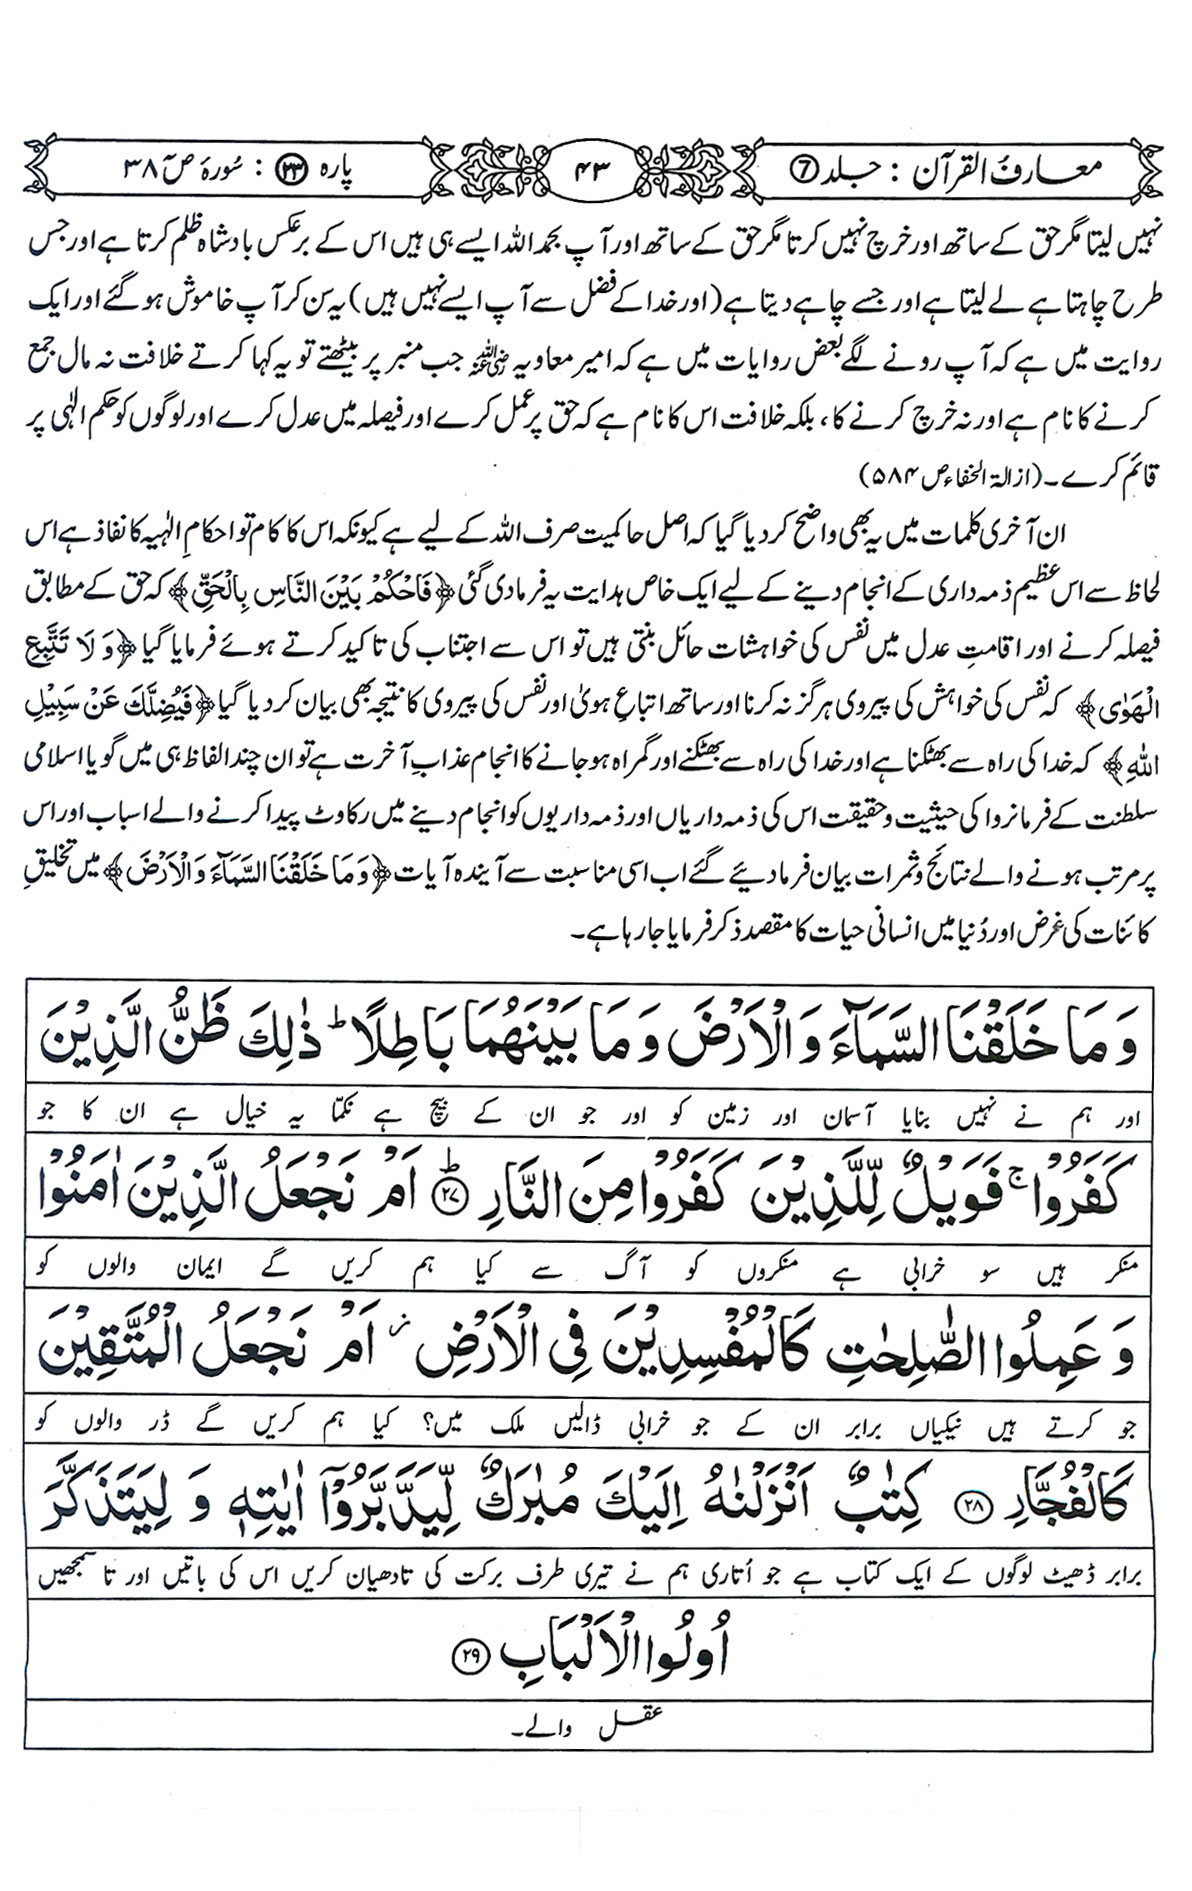 معارف القرآن : جلد 7
۴۳
پارہ ۲۳ : سُورۂ صٓ ۳۸
نہیں لیتا مگر حق کے ساتھ اور خرچ نہیں کرتا مگر حق کے ساتھ اور آپ بحمد اللہ ایسے ہی ہیں اس کے برعکس بادشاہ ظلم کرتا ہے اور جس
طرح چاہتا ہے لے لیتا ہے اور جسے چاہے دیتا ہے (اور خدا کے فضل سے آپ ایسے نہیں ہیں) یہ سن کر آپ خاموش ہو گئے اور ایک
روایت میں ہے کہ آپ رونے لگے بعض روایات میں ہے کہ امیر معاویہ رضی اللہ عنہ جب منبر پر بیٹھتے تو یہ کہا کرتے خلافت نہ مال جمع
کرنے کا نام ہے اور نہ خرچ کرنے کا، بلکہ خلافت اس کا نام ہے کہ حق پر عمل کرے اور فیصلہ میں عدل کرے اور لوگوں کو حکم الٰہی پر
قائم کرے۔ (ازالۃ الخفاء ص ۵۸۴)
ان آخری کلمات میں یہ بھی واضح کر دیا گیا کہ اصل حاکمیت صرف اللہ کے لیے ہے کیونکہ اس کا کام تو احکامِ الٰہیہ کا نفاذ ہے اس
لحاظ سے اس عظیم ذمہ داری کے انجام دینے کے لیے ایک خاص ہدایت یہ فرما دی گئی ﴿فَاحْكُمْ بَيْنَ النَّاسِ بِالْحَقِّ﴾ کہ حق کے مطابق
فیصلہ کرنے اور اقامتِ عدل میں نفس کی خواہشات حائل بنتی ہیں تو اس سے اجتناب کی تاکید کرتے ہوئے فرمایا گیا ﴿وَ لَا تَتَّبِعِ
الْهَوٰى﴾ کہ نفس کی خواہش کی پیروی ہرگز نہ کرنا اور ساتھ اتباعِ ہویٰ اور نفس کی پیروی کا نتیجہ بھی بیان کر دیا گیا ﴿فَيُضِلَّكَ عَنْ سَبِيْلِ
اللّٰهِ﴾ کہ خدا کی راہ سے بھٹکنا ہے اور خدا کی راہ سے بھٹکنے اور گمراہ ہو جانے کا انجام عذابِ آخرت ہے تو ان چند الفاظ ہی میں گویا اسلامی
سلطنت کے فرمانروا کی حیثیت و حقیقت اس کی ذمہ داریاں اور ذمہ داریوں کو انجام دینے میں رکاوٹ پیدا کرنے والے اسباب اور اس
پر مرتب ہونے والے نتائج و ثمرات بیان فرما دیئے گئے اب اسی مناسبت سے آیندہ آیات ﴿وَ مَا خَلَقْنَا السَّمَآءَ وَ الْاَرْضَ﴾ میں تخلیقِ
کائنات کی غرض اور دُنیا میں انسانی حیات کا مقصد ذکر فرمایا جا رہا ہے۔
وَ مَا خَلَقْنَا السَّمَآءَ وَ الْاَرْضَ وَ مَا بَيْنَهُمَا بَاطِلًا ؕ ذٰلِكَ ظَنُّ الَّذِيْنَ
اور ہم نے نہیں بنایا آسمان اور زمین کو اور جو ان کے بیچ ہے نکمّا یہ خیال ہے ان کا جو
كَفَرُوْا ۚ فَوَيْلٌ لِّلَّذِيْنَ كَفَرُوْا مِنَ النَّارِ ؕ ۲۷ اَمْ نَجْعَلُ الَّذِيْنَ اٰمَنُوْا
منکر ہیں سو خرابی ہے منکروں کو آگ سے کیا ہم کریں گے ایمان والوں کو
وَ عَمِلُوا الصّٰلِحٰتِ كَالْمُفْسِدِيْنَ فِي الْاَرْضِ ؗ اَمْ نَجْعَلُ الْمُتَّقِيْنَ
جو کرتے ہیں نیکیاں برابر ان کے جو خرابی ڈالیں ملک میں؟ کیا ہم کریں گے ڈر والوں کو
كَالْفُجَّارِ ۲۸ كِتٰبٌ اَنْزَلْنٰهُ اِلَيْكَ مُبٰرَكٌ لِّيَدَّبَّرُوْۤا اٰيٰتِهٖ وَ لِيَتَذَكَّرَ
برابر ڈھیٹ لوگوں کے ایک کتاب ہے جو اُتاری ہم نے تیری طرف برکت کی تا دھیان کریں اس کی باتیں اور تا سمجھیں
اُولُوا الْاَلْبَابِ ۲۹
عقل والے۔